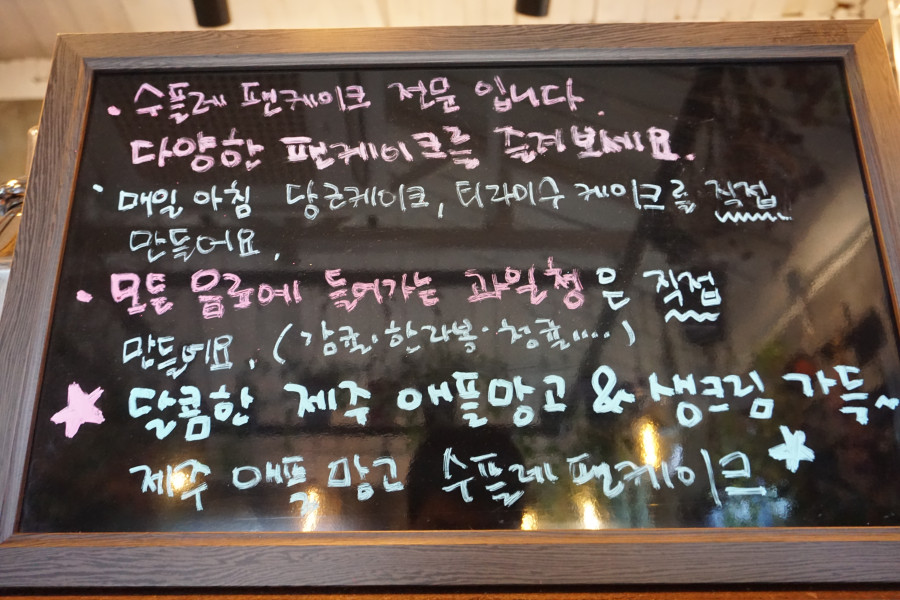 · 수플레 팬케이크 전문 입니다.
다양한 팬케이크를 즐겨보세요.
· 매일 아침 당근케이크, 티라미수 케이크를 직접
만들어요.
· 모든 음료에 들어가는 과일청은 직접
만들어요. (감귤·한라봉·청귤....)
★ 달콤한 제주 애플망고 & 생크림 가득~
제주 애플 망고 수플레 팬케이크 ★